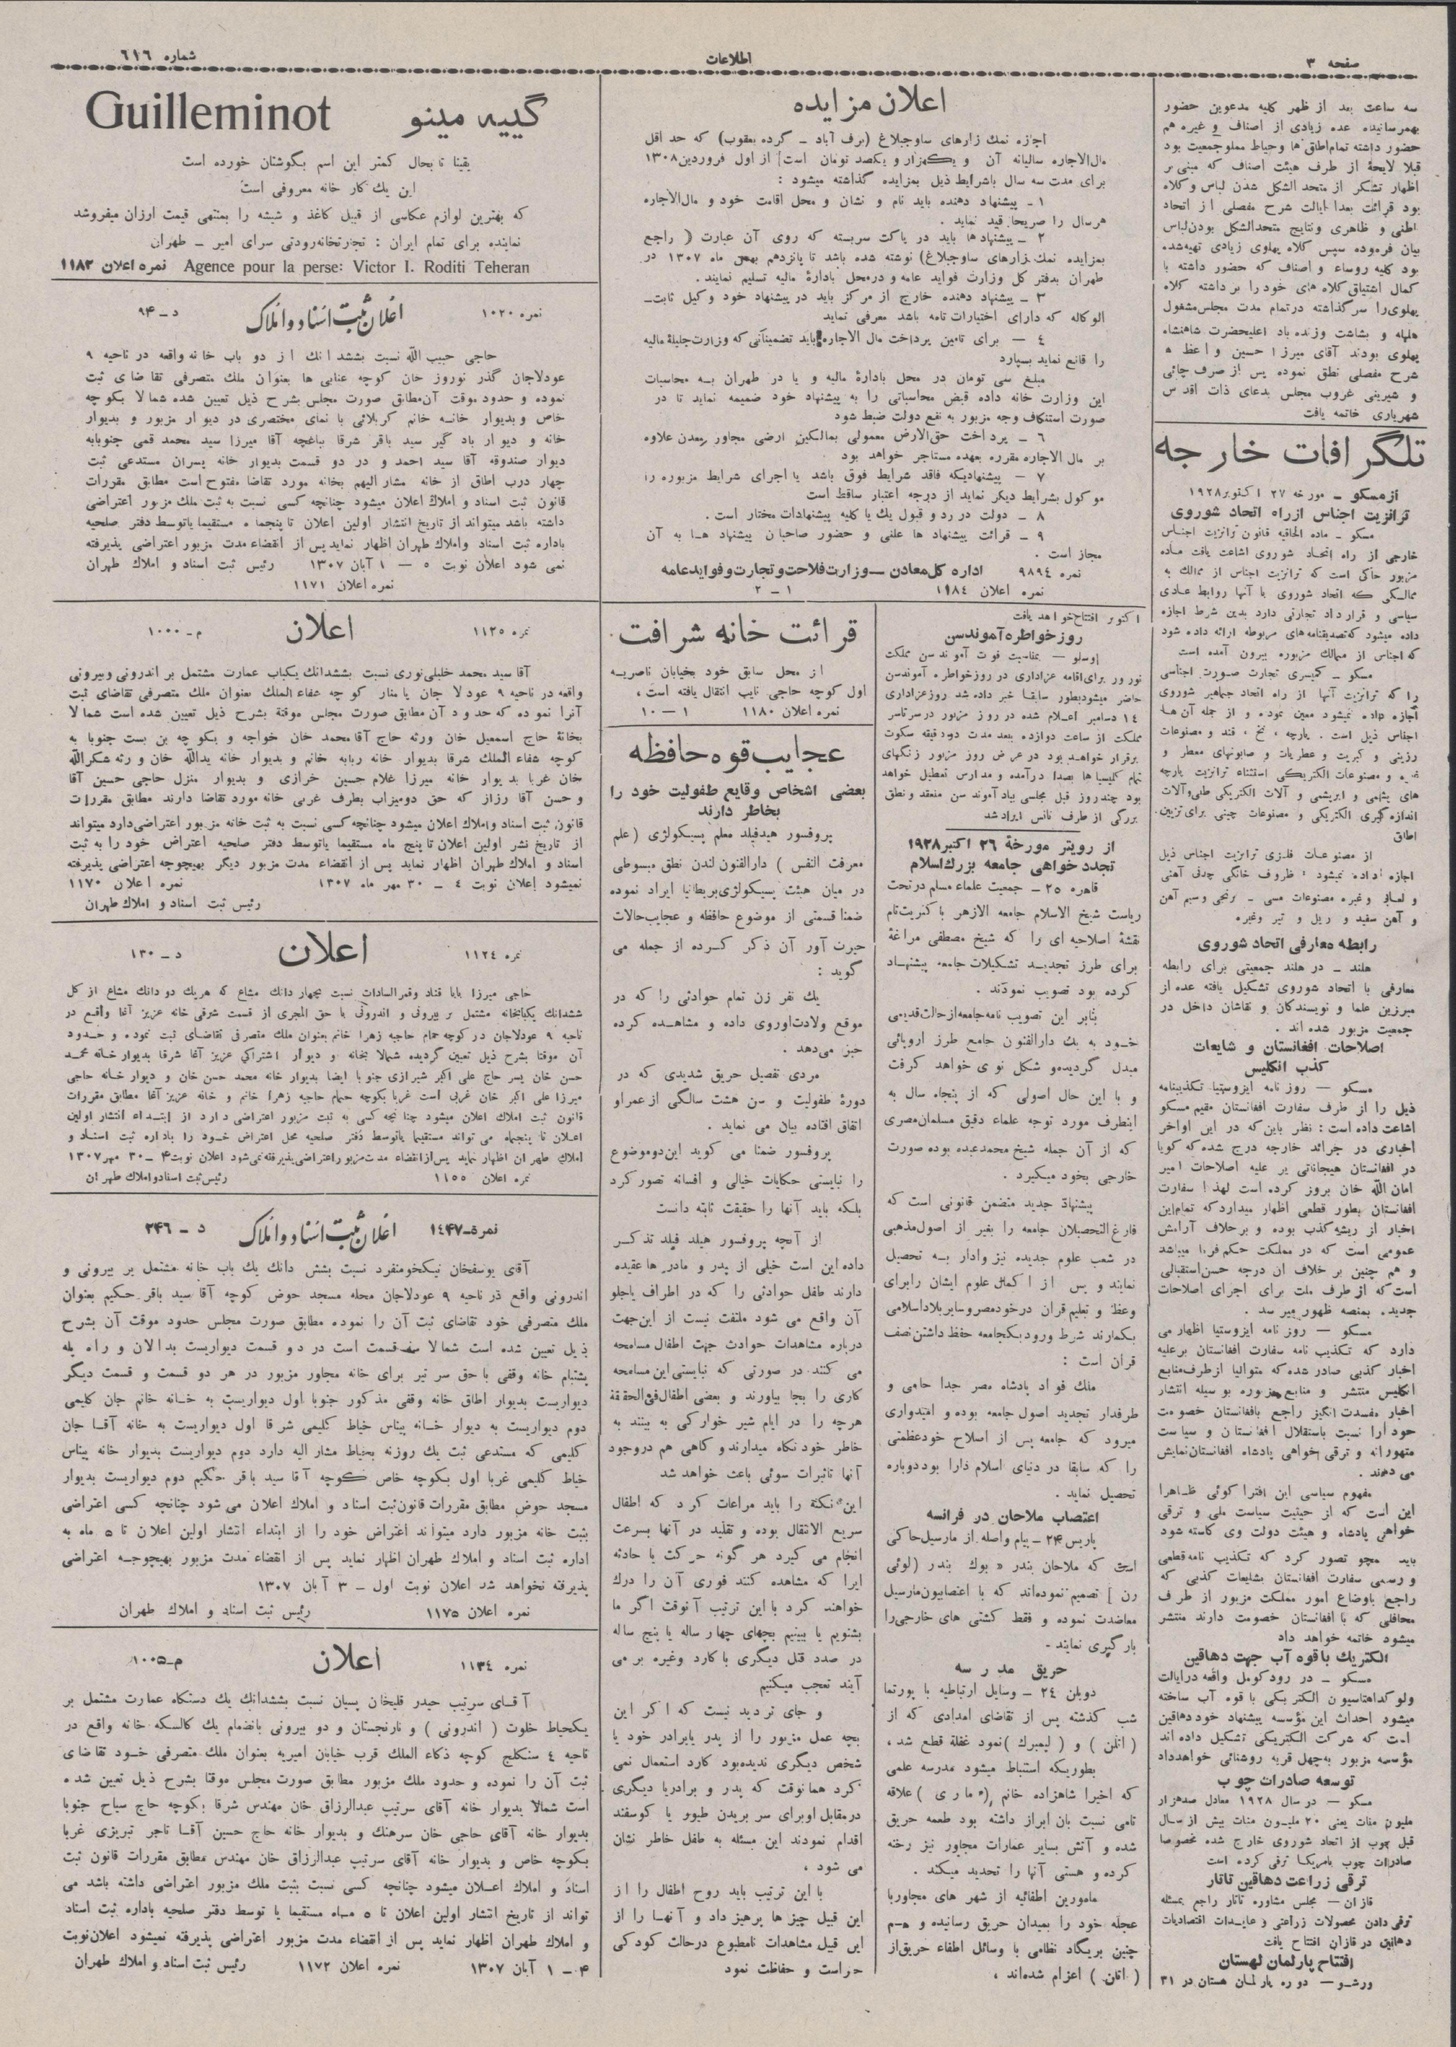 صفحه ۳
اطلاعات
شماره ۶۱۶
سه ساعت بعد از ظهر کلیه مدعوین حضور
بهمرسانیده عده زیادی از اصناف و غیره هم
حضور داشته تمام اطاق ها وحیاط مملو جمعیت بود
قبلا لایحهٔ از طرف هیئت اصناف که مبنی بر
اظهار تشکر از متحد الشکل شدن لباس و کلاه
بود قرائت بعدا ایالت شرح مفصلی از اتحاد
اطنی و ظاهری ونتایج متحد الشکل بودن لباس
بیان فرموده سپس کلاه پهلوی زیادی تهیه شده
بود کلیه روساء و اصناف که حضور داشته با
کمال اشتیاق کلاه های خود را بر داشته کلاه
پهلوی را سر گذاشته در تمام مدت مجلس مشغول
هلهله و بشاشت وزنده باد اعلیحضرت شاهنشاه
پهلوی بودند آقای میرزا حسین واعظ
شرح مفصلی نطق نموده پس از صرف چائی
و شیرینی غروب مجلس بدعای ذات اقدس
شهریاری خاتمه یافت
تلگرافات خارجه
از مسکو – مورخه ۲۷ اکتوبر ۱۹۲۸
ترانزیت اجناس ازراه اتحاد شوروی
مسکو – ماده الحاقیه قانون ترانزیت اجناس
خارجی از راه اتحاد شوروی اشاعت یافت ماده
مزبور حاکی است که ترانزیت اجناس از ممالک به
ممالکی که اتحاد شوروی با آنها روابط عادی
سیاسی و قرار داد تجارتی دارد بدین شرط اجازه
داده میشود که تصدیقنامه های مربوطه ارائه داده شود
که اجناس از ممالک مزبوره بیرون آمده است
مسکو – کمیسری تجارت صورت اجناسی
را که ترانزیت آنها از راه اتحاد جماهیر شوروی
اجازه داده نمیشود معین نموده و از جمله آن ها
اجناس ذیل است . پارچه ، نخ ، قند و مصنوعات
رزینی و کبریت و عطریات و صابونهای معطر و
غیره و مصنوعات الکتریکی استثناء ترانزیت پارچه
های پشمی و ابریشمی و آلات الکتریکی طبی وآلات
اندازه گیری الکتریکی و مصنوعات چینی برای تزیین
اطاق
از مصنوعات فلزی ترانزیت اجناس ذیل
اجازه داده نمیشود : ظروف خانگی چدنی آهنی
و لعابی وغیره مصنوعات مسی – برنجی وسیم آهن
و آهن سفید و ریل و تیر وغیره
رابطه معارفی اتحاد شوروی
هلند – در هلند جمعیتی برای رابطه
معارفی با اتحاد شوروی تشکیل یافته عده از
مبرزین علما و نویسندگان و نقاشان داخل در
جمعیت مزبور شده اند .
اصلاحات افغانستان و شایعات
کذب انگلیس
مسکو – روز نامه ایزوستیا تکذیبنامه
ذیل را از طرف سفارت افغانستان مقیم مسکو
اشاعت داده است : نظر باین که در این اواخر
اخباری در جرائد خارجه درج شده که گویا
در افغانستان هیجاناتی بر علیه اصلاحات امیر
امان الله خان بروز کرده است لهذا سفارت
افغانستان بطور قطعی اظهار میدارد که تمام این
اخبار از ریشه کذب بوده و برخلاف آرامش
عمومی است که در مملکت حکم فرما میباشد
و هم چنین بر خلاف آن درجه حسن استقبالی
است که از طرف ملت برای اجرای اصلاحات
جدیده بمنصه ظهور میرسد .
مسکو – روز نامه ایزوستیا اظهار می
دارد که تکذیب نامه سفارت افغانستان بر علیه
اخبار کذبی صادر شده که متوالیا از طرف منابع
انگلیس منتشر و منابع مزبوره بو سیله انتشار
اخبار مفسدت انگیز راجع بافغانستان خصومت
خود را نسبت باستقلال افغانستان و سیاست
متهورانه و ترقی خواهی پادشاه افغانستان نمایش
می دهند .
مفهوم سیاسی این افترا گوئی ظاهرا
این است که از حیثیت سیاست ملی و ترقی
خواهی پادشاه و هیئت دولت وی کاسته شود
باید محو تصور کرد که تکذیب نامه قطعی
و رسمی سفارت افغانستان بشایعات کذبی که
راجع باوضاع امور مملکت مزبور از طرف
محافلی که با افغانستان خصومت دارند منتشر
میشود خاتمه خواهد داد
الکتریک باقوه آب جهت دهاقین
مسکو – در رود کومل واقعه درایالت
ولوکدا هتاسیون الکتریکی با قوه آب ساخته
میشود احداث این مؤسسه پیشنهاد خود دهاقین
است که شرکت الکتریکی تشکیل داده اند
مؤسسه مزبور به چهل قریه روشنائی خواهد داد
توسعه صادرات چوب
مسکو – در سال ۱۹۲۸ معادل صدهزار
ملیون منات یعنی ۲۰ ملیون منات بیش از سال
قبل چوب از اتحاد شوروی خارج شده مخصوصا
صادرات چوب بامریکا ترقی کرده است
ترقی زراعت دهاقین تاتار
قازان – مجلس مشاوره تاتار راجع بمسئله
ترقی دادن محصولات زراعتی و عایدات اقتصادیات
دهاقین در قازان افتتاح یافت
افتتاح پارلمان لهستان
ورشو – دوره پارلمان هستان در ۳۱
اعلان مزایده
اجازه نمک زارهای ساوجبلاغ (برف آباد – گرده یعقوب) که حد اقل
مال الاجاره سالیانه آن و یکهزار و یکصد تومان است] از اول فروردین ۱۳۰۸
برای مدت سه سال باشرایط ذیل بمزایده گذاشته میشود :
۱ – پیشنهاد دهنده باید نام و نشان و محل اقامت خود و مال الاجاره
هر سال را صریحا قید نماید .
۲ – پیشنهادها باید در پاکت سربسته که روی آن عبارت ( راجع
بمزایده نمک زارهای ساوجبلاغ) نوشته شده باشد تا پانزدهم بهمن ماه ۱۳۰۷ در
طهران بدفتر کل وزارت فواید عامه و در محل بادارهٔ مالیه تسلیم نمایند .
۳ – پیشنهاد دهنده خارج از مرکز باید در پیشنهاد خود وکیل ثابت–
الوکاله که دارای اختیارات تامه باشد معرفی نماید
٤ – برای تامین پرداخت مال الاجاره باید تضمیناتی که وزارت جلیلهٔ مالیه
را قانع نماید بسپارد
مبلغ سی تومان در محل بادارهٔ مالیه و یا در طهران بسه محاسبات
این وزارت خانه داده قبض محاسباتی را به پیشنهاد خود ضمیمه نماید تا در
صورت استنکاف وجه مزبور به نفع دولت ضبط شود
۶ – پرداخت حق الارض معمولی بمالکین ارضی مجاور معدن علاوه
بر مال الاجاره مقرره بعهده مستاجر خواهد بود
۷ – پیشنهادیکه فاقد شرایط فوق باشد یا اجرای شرایط مزبوره را
موکول بشرایط دیگر نماید از درجه اعتبار ساقط است
۸ – دولت در رد و قبول یک یا کلیه پیشنهادات مختار است .
۹ – قرائت پیشنهاد ها علنی و حضور صاحبان پیشنهاد هـا به آن
مجاز است .
نمره ۹۸۹٤ اداره کل معادن – وزارت فلاحت و تجارت و فواید عامه
نمره اعلان ۱۱۸٤ ۱ – ۲
اکتوبر افتتاح خواهد یافت
روز خواطره آموندسن
اوسلو – بمناسبت فوت آموندسن مملکت
نورور برای اقامه عزاداری در روز خواطره آموندسن
حاضر میشود بطور سابقا خبر داده شد روز عزاداری
۱٤ دسامبر اعلام شده در روز مزبور در سر تاسر
مملکت از ساعت دوازده بعد مدت دو دقیقه سکوت
برقرار خواهد بود در عرض روز مزبور زنگهای
تمام کلیسیا ها بصدا در آمده و مدارس تعطیل خواهد
بود چند روز قبل مجلسی بیاد آموند سن منعقد و نطق
بزرگی از طرف نانس ایراد شد
از رویتر مورخهٔ ۲۶ اکتبر ۱۹۲۸
تجدد خواهی جامعه بزرك اسلام
قاهره ۲۵ – جمعیت علماء مسلم در تحت
ریاست شیخ الاسلام جامعه الازهر با کثریت تام
نقشهٔ اصلاحیه ای را که شیخ مصطفی مراغهٔ
برای طرز تجدیـد تشکیلات جامعه پیشنهاد
کرده بود تصویب نمودند .
بنابر این تصویب نامه جامعه از حالت قدیمی
خـود به یك دارالفنون جامع طرز اروپائی
مبدل گردیده و شکل نوی خواهد گرفت
و با این حال اصولی که از پنجاه سال به
اینطرف مورد توجه علماء دقیق مسلمان مصری
که از آن جمله شیخ محمد عبده بوده صورت
خارجی بخود میگیرد .
پیشنهاد جدید متضمن قانونی است که
فارغ التحصیلان جامعه را بغیر از اصول مذهبی
در شعب علوم جدیده نیز وادار بـه تحصیل
نمایند و پس از اکمال علوم ایشان رابرای
وعظ و تعلیم قران در خود مصر و سایر بلاد اسلامی
بگمارند شرط ورود بکجامعه حفظ داشتن نصف
قران است :
ملك فواد پادشاه مصر جدا حامی و
طرفدار تجدید اصول جامعه بوده و امیدواری
میرود که جامعه پس از اصلاح خود عظمتی
را که سابقا در دنیای اسلام دارا بود دوباره
تحصیل نماید .
اعتصاب ملاحان در فرانسه
پاریس ۲۴ – پیام واصله از مارسیل حاکی
است که ملاحان بندر « بوك بندر (لوئی
رن ] تصمیم نموده اند که با اعتصابیون مارسیل
معاضدت نموده و فقط کشتی های خارجی را
بار گیری نمایند –
حریق مدرسه
دوبلن ۲٤ – وسایل ارتباطیه با پورتما
شب گذشته پس از تقاضای امدادی که از
( اتلن ) و ( لیمبرك )نمود غفلة قطع شد ،
بطوریکه استنباط میشود مدرسه علمی
که اخیرا شاهزاده خانم (ماری )علاقه
تامی نسبت بان ابراز داشته بود طعمه حریق
شده و آتش بسایر عمارات مجاور نیز رخنه
کرده و هستی آنها را تحدید میکند .
مامورین اطفائیه از شهر های مجاور با
عجله خود را بمیدان حریق رسانیده و هـم
چنین بریگاد نظامی با وسائل اطفاء حریق از
( اتان ) اعزام شده اند ،
قرائت خانه شرافت
از محل سابق خود بخیابان ناصریـه
اول کوچه حاجی نایب انتقال یافته است ،
نمره اعلان ۱۱۸۰ ۱ – ۱۰
عجایب قوه حافظه
بعضی اشخاص وقایع طفولیت خود را
بخاطر دارند
پروفسور هیدفیلد معلم پسیکولژی (علم
معرفت النفس ) دارالفنون لندن نطق مبسوطی
در میان هیئت پسیکولژی بریطانیا ایراد نموده
ضمنا قسمتی از موضوع حافظه و عجایب حالات
حیرت آور آن ذکر کـرده از جمله می
گوید :
یك نفر زن تمام حوادثی را که در
موقع ولادت اوروی داده و مشاهـده کرده
خبر می دهد .
مردی تفصیل حریق شدیدی که در
دورهٔ طفولیت و سن هشت سالگی از عمر او
اتفاق افتاده بیان می نماید .
پروفسور ضمنا می گوید این دو موضوع
را نبایستی حکایات خیالی و افسانه تصور کرد
بلکه باید آنها را حقیقت ثابته دانست
از آنچه پروفسور هیلد فیلد تذکر
داده این است خیلی از پدر و مادر ها عقیده
دارند طفل حوادثی را که در اطراف یاجلو
آن واقع می شود ملتفت نیست از این جهت
درباره مشاهدات حوادث جهت اطفال مسامحه
می کنند در صورتی که نبایستی این مسامحه
کاری را بجا بیاورند و بعضی اطفال فی الحقیقة
هرچه را در ایام شیر خوارگی به بینند به
خاطر خود نگاه میدارند و گاهی هم دروجود
آنها تاثیرات سوئی باعث خواهد شد
این نکته را باید مراعات کرد که اطفال
سریع الانتقال بوده و تقلید در آنها بسرعت
انجام می گیرد هر گونه حرکت با حادثه
ایرا که مشاهده کنند فوری آن را درك
خواهند کرد با این ترتیب آنوقت اگر ما
بشنویم یا ببینیم بچهای چهار ساله یا پنج ساله
در صدد قتل دیگری با کارد وغیره بر می
آیند تعجب میکنیم
و جای تردید نیست که اگر این
بچه عمل مزبور را از پدر یابرادر خود یا
شخص دیگری ندیده بود کارد استعمال نمی
کرد همانوقت که پدر و برادریا دیگری
در مقابل او برای سر بریدن طیور یا گوسفند
اقدام نمودند این مسئله به طفل خاطر نشان
می شود ،
با این ترتیب باید روح اطفال را از
این قبیل چیز ها پرهیز داد و آنهـا را از
این قبیل مشاهدات نامطبوع درحالت کودکی
حراست و حفاظت نمود
گییه مینو Guilleminot
یقینا تا بحال کمتر این اسم بگوشتان خورده است
این یك کار خانه معروفی است
که بهترین لوازم عکاسی از قبیل کاغذ و شیشه را بمنتهی قیمت ارزان میفروشد
نماینده برای تمام ایران : تجارتخانه رودتی سرای امیر – طهران
Agence pour la perse: Victor I. Roditi Teheran نمره اعلان ۱۱۸۳
نمره ۱۰۲۰ اعلان ثبت اسناد و املاك د – ۹۴
حاجی حبیب الله نسبت بششدانك از دو باب خانه واقعه در ناحیه ۹
عودلاجان گذر نوروز خان کوچه عنابی ها بعنوان ملك متصرفی تقاضای ثبت
نموده و حدود موقت آن مطابق صورت مجلس بشرح ذیل تعیین شده شمالا بکوچه
خاص و بدیوار خانه خانم کربلائی با نمای مختصری در دیوار مزبور و بدیوار
خانه و دیوار باد گیر سید باقر شرقا بباغچه آقا میرزا سید محمد قمی جنوبابه
دیوار صندوقه آقا سید احمد و در دو قسمت بدیوار خانه پسران مستدعی ثبت
چهار درب اطاق از خانه مشار الیهم بخانه مورد تقاضا مفتوح است مطابق مقررات
قانون ثبت اسناد و املاك اعلان میشود چنانچه کسی نسبت به ثبت ملك مزبور اعتراضی
داشته باشد میتواند از تاریخ انتشار اولین اعلان تا پنجماه مستقیما یاتوسط دفتر صلحیه
باداره ثبت اسناد واملاك طهران اظهار نماید پس از انقضاء مدت مزبور اعتراضی پذیرفته
نمی شود اعلان نوبت ۵ – ۱ آبان ۱۳۰۷ رئیس ثبت اسناد و املاك طهران
نمره اعلان ۱۱۷۱
نمره ۱۱۲۵ اعلان م – ۱۰۰۰
آقا سید محمد خلیلی نوری نسبت بششدانك یکباب عمارت مشتمل بر اندرونی وبیرونی
واقعه در ناحیه ۹ عودلاجان پا منار کوچه عفاء الملك بعنوان ملك متصرفی تقاضای ثبت
آنرا نموده که حدود آن مطابق صورت مجلس موقتهٔ بشرح ذیل تعیین شده است شمالا
بخانهٔ حاج اسمعیل خان ورثه حاج آقا محمد خان خواجه و بکوچه بن بست جنوبا به
کوچه شفاء الملك شرقا بدیوار خانه ربابه خانم و بدیوار خانه یدالله خان و رثه شکرالله
خان غربا بدیوار خانه میرزا غلام حسین خرازی و بدیوار منزل حاجی حسین آقا
و حسن آقا رزاز که حق دو میزاب بطرف غربی خانه مورد تقاضا دارند مطابق مقررات
قانون ثبت اسناد و املاك اعلان میشود چنانچه کسی نسبت به ثبت خانه مزبور اعتراضی دارد میتواند
از تاریخ نشر اولین اعلان تا پنج ماه مستقیما یاتوسط دفتر صلحیه اعتراض خود را به ثبت
اسناد و املاك طهران اظهار نماید پس از انقضاء مدت مزبور دیگر بهیچوجه اعتراضی پذیرفته
نمیشود اعلان نوبت ٤ – ۳۰ مهر ماه ۱۳۰۷ نمره اعلان ۱۱۷۰
رئیس ثبت اسناد و املاك طهران
نمره ۱۱۲٤ اعلان د – ۱۳۰
حاجی میرزا بابا قناد وقمر السادات نسبت بچهار دانك مشاع که هریك دو دانك مشاع از کل
ششدانك یکبابخانه مشتمل بر بیرونی و اندرونی با حق المجری از قسمت شرقی خانه عزیز آغا واقع در
ناحیه ۹ عودلاجان در کوچه حمام حاجیه زهرا خانم بعنوان ملك متصرفی تقاضای ثبت نموده و حدود
آن موقتا بشرح ذیل تعیین گردیده شمالا بخانه و دیوار اشتراکی عزیز آغا شرقا بدیوار خانه محمد
حسن خان پسر حاج علی اکبر شیرازی جنوبا ایضا بدیوار خانه محمد حسن خان و دیوار خانه حاجی
میرزا علی اکبر خان غربی است غربا بکوچه حمام حاجیه زهرا خانم و خانه عزیز آغا مطابق مقررات
قانون ثبت املاك اعلان میشود چنانچه کسی به ثبت مزبور اعتراضی دارد از ابتداء انتشار اولین
اعلان تا پنجماه می تواند مستقیما یاتوسط دفتر صلحیه محل اعتراض خود را باداره ثبت اسناد و
املاك طهران اظهار نماید پس از انقضاء مدت مزبور اعتراضی پذیرفته نمی شود اعلان نوبت ۴ – ۳۰ مهر ۱۳۰۷
نمره اعلان ۱۱۵۵ رئیس ثبت اسناد واملاك طهران
نمره – ۱٤۴۷ اعلان ثبت اسناد و املاك د – ۲۴۶
آقای یوسفخان نیکخومنفرد نسبت بشش دانك یك باب خانه مشتمل بر بیرونی و
اندرونی واقع در ناحیه ۹ عودلاجان محله مسجد حوض کوچه آقا سید باقر حکیم بعنوان
ملك متصرفی خود تقاضای ثبت آن را نموده مطابق صورت مجلس حدود موقت آن بشرح
ذیل تعیین شده است شمالا سه قسمت است در دو قسمت دیواریست بدالان و راه پله
پشتبام خانه وقفی با حق سر تیر برای خانه مجاور مزبور در هر دو قسمت و قسمت دیگر
دیواریست بدیوار اطاق خانه وقفی مذکور جنوبا اول دیواریست به خانه خانم جان کلیمی
دوم دیواریست به دیوار خانه بیناس خیاط کلیمی شرقا اول دیواریست به خانه آقا جان
کلیمی که مستدعی ثبت یك روزنه بحیاط مشار الیه دارد دوم دیواریست بدیوار خانه بیناس
خیاط کلیمی غربا اول بکوچه خاص کوچه آقا سید باقر حکیم دوم دیواریست بدیوار
مسجد حوض مطابق مقررات قانون ثبت اسناد و املاك اعلان می شود چنانچه کسی اعتراضی
بثبت خانه مزبور دارد میتواند اعتراض خود را از ابتداء انتشار اولین اعلان تا ۵ ماه به
اداره ثبت اسناد و املاك طهران اظهار نماید پس از انقضاء مدت مزبور بهیچوجه اعتراضی
پذیرفته نخواهد شد اعلان نوبت اول – ۳ آبان ۱۳۰۷
نمره اعلان ۱۱۷۵ رئیس ثبت اسناد و املاك طهران
نمره ۱۱۳٤ اعلان م – ۱۰۰۵
آقـای سرتیپ حیدر قلیخان پسیان نسبت بششدانك یك دستگاه عمارت مشتمل بر
یکحیاط خلوت ( اندرونی ) و نارنجستان و دو بیرونی بانضمام یك کالسکه خانه واقع در
ناحیه ٤ سنگلج کوچه ذکاء الملك قرب خیابان امیریه بعنوان ملك متصرفی خود تقاضای
ثبت آن را نموده و حدود ملك مزبور مطابق صورت مجلس موقتا بشرح ذیل تعیین شده
است شمالا بدیوار خانه آقای سرتیپ عبدالرزاق خان مهندس شرقا بکوچه حاج سیاح جنوبا
بدیوار خانه آقای حاجی خان سرهنك و بدیوار خانه حاج حسین آقـا تاجر تبریزی غربا
بکوچه خاص و بدیوار خانه آقای سرتیپ عبدالرزاق خان مهندس مطابق مقررات قانون ثبت
اسناد و املاك اعـلان میشود چنانچه کسی نسبت بثبت ملك مزبور اعتراضی داشته باشد می
تواند از تاریخ انتشار اولین اعلان تا ۵ مـاه مستقیما یا توسط دفتر صلحیه باداره ثبت اسناد
و املاك طهران اظهار نماید پس از انقضاء مدت مزبور اعتراضی پذیرفته نمیشود اعلان نوبت
۴ – ۱ آبان ۱۳۰۷ نمره اعلان ۱۱۷۲ رئیس ثبت اسناد و املاك طهران